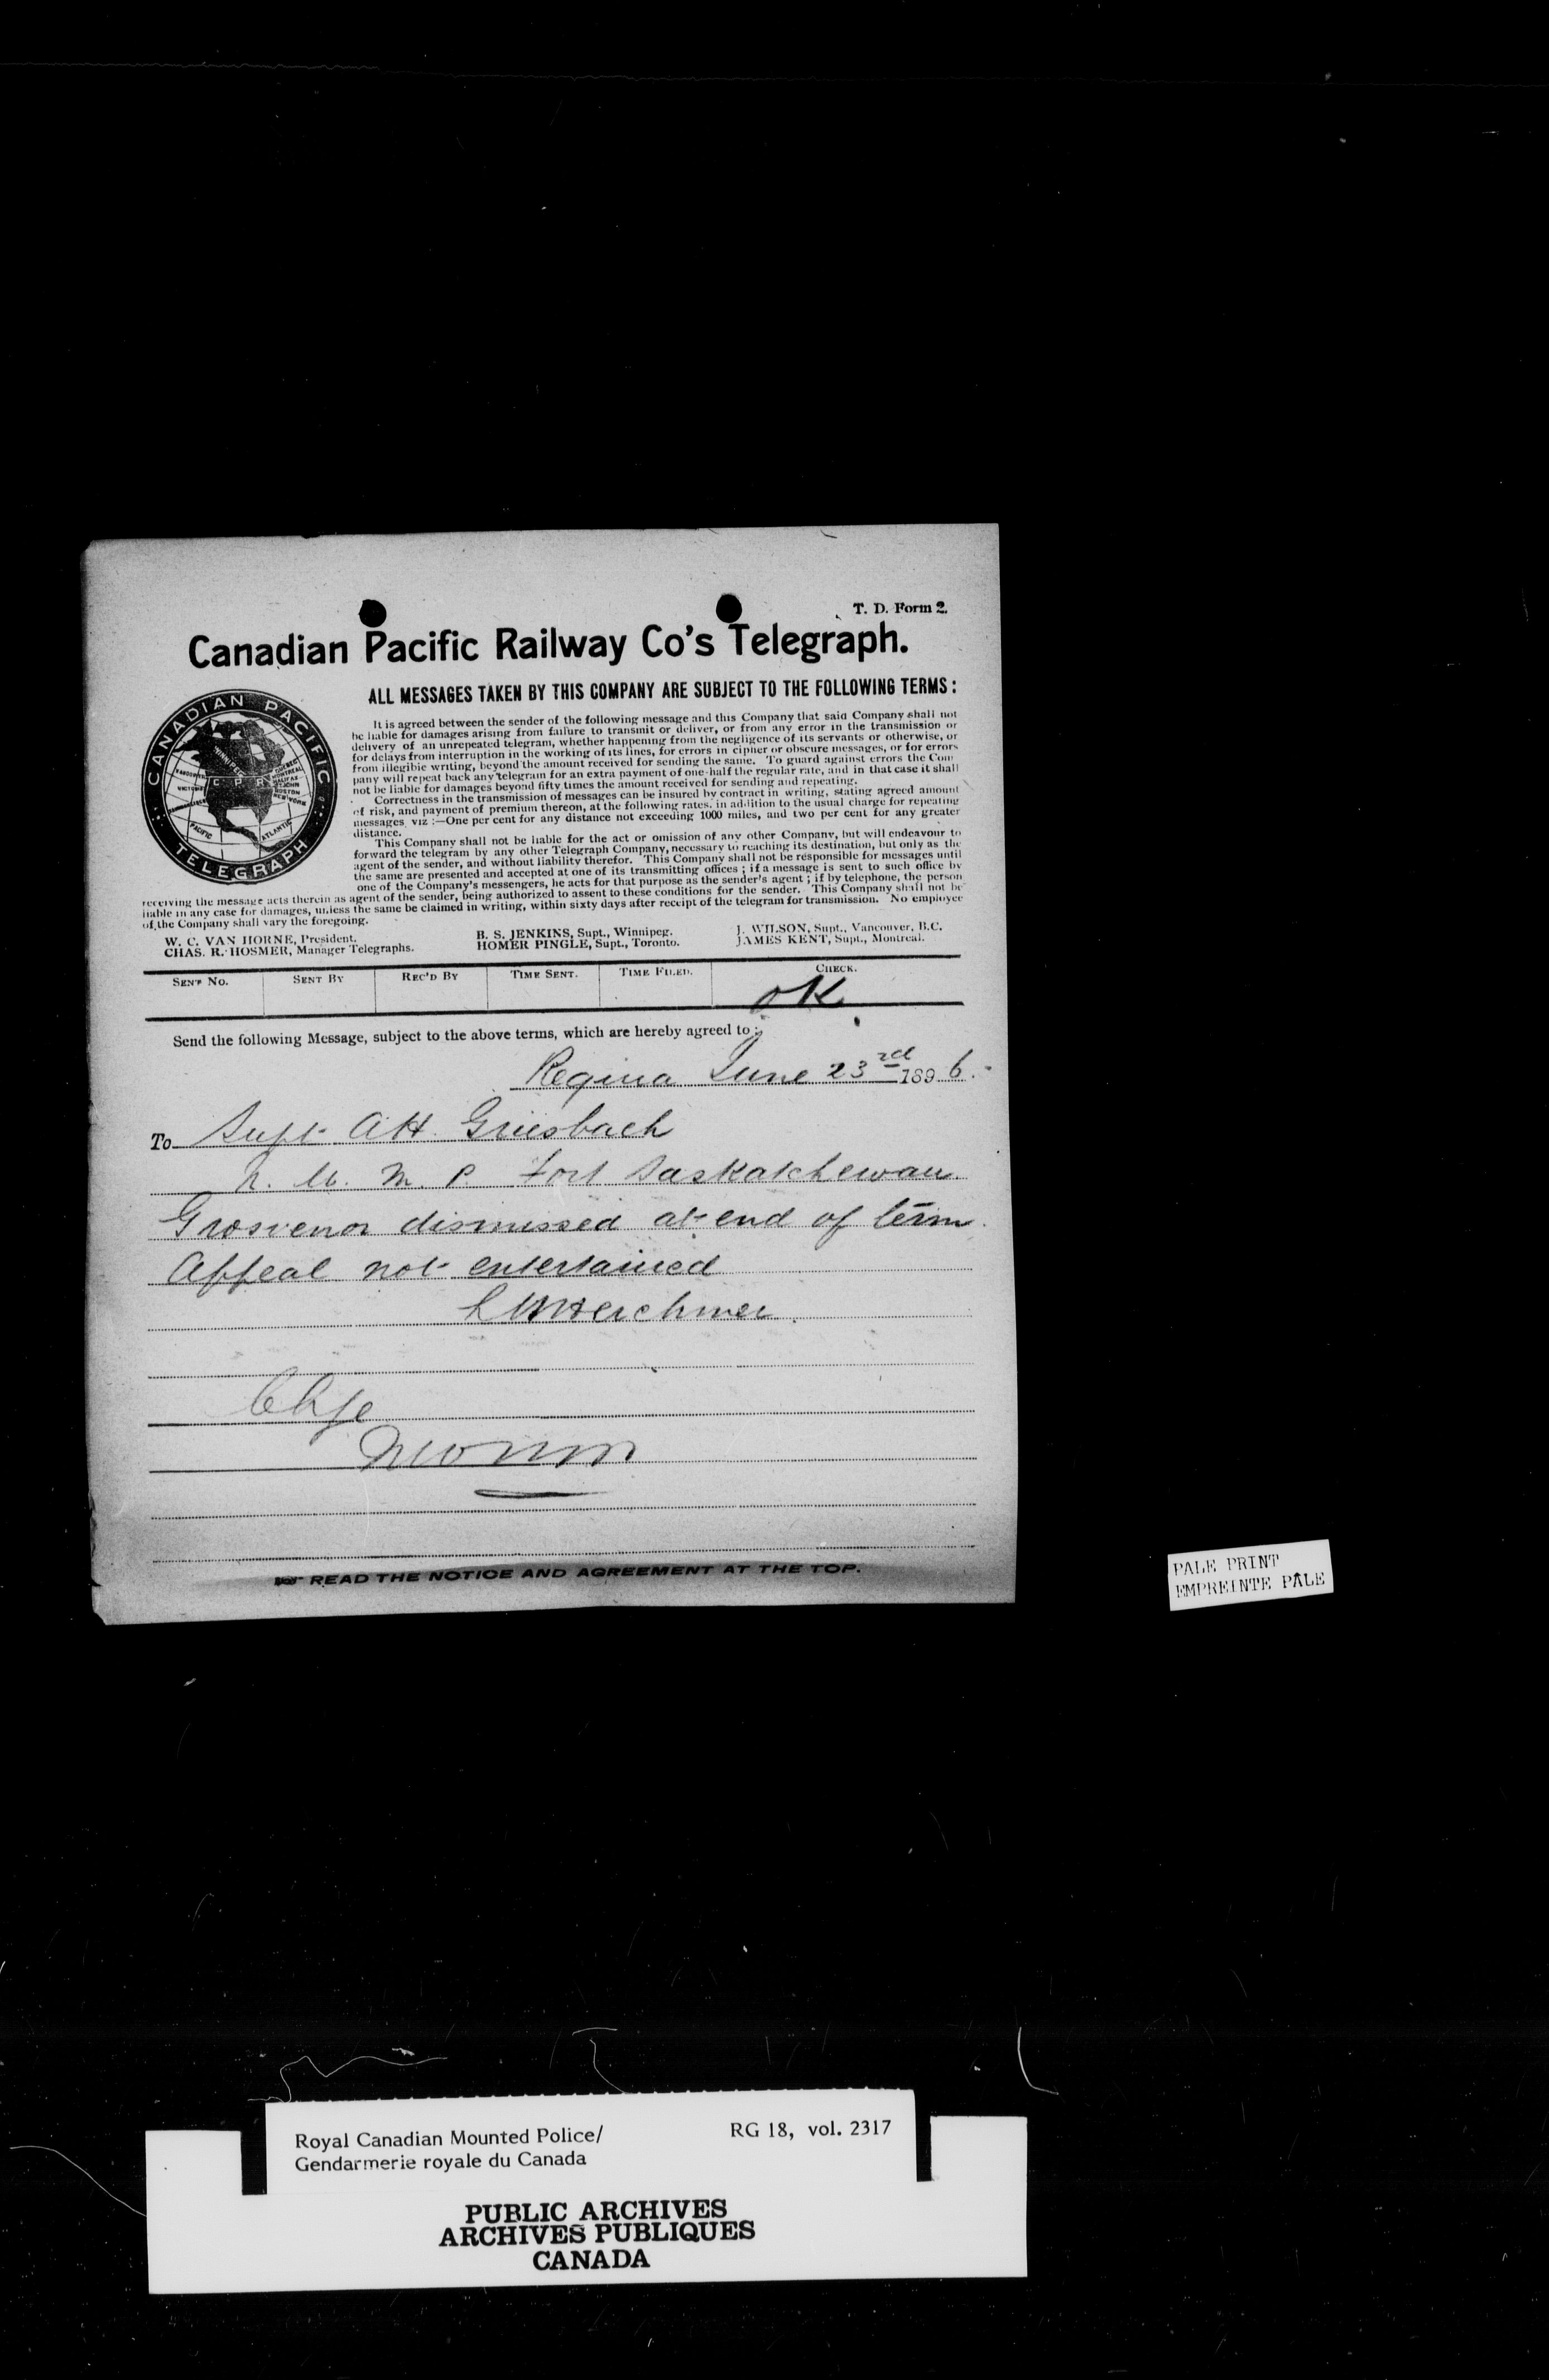 T. D. Form 2.
Canadian Pacific Railway Co's Telegraph.
ALL MESSAGES TAKEN BY THIS COMPANY ARE SUBJECT TO THE FOLLOWING TERMS:
CANADIAN PACIFIC
C P R
PACIFIC
ATLANTIC
TELEGRAPH
It is agreed between the sender of the following message and this Company that said Company shall not
be liable for damages arising from failure to transmit or deliver, or from any error in the transmission or
delivery of an unrepeated telegram, whether happening from the negligence of its servants or otherwise, or
for delays from interruption in the working of its lines, for errors in cipher or obscure messages, or for errors
from illegible writing, beyond the amount received for sending the same. To guard against errors the Com
pany will repeat back any telegram for an extra payment of one-half the regular rate, and in that case it shall
not be liable for damages beyond fifty times the amount received for sending and repeating.
Correctness in the transmission of messages can be insured by contract in writing, stating agreed amount
of risk, and payment of premium thereon, at the following rates, in addition to the usual charge for repeating
messages viz :—One per cent for any distance not exceeding 1000 miles, and two per cent for any greater
distance.
This Company shall not be liable for the act or omission of any other Company, but will endeavour to
forward the telegram by any other Telegraph Company, necessary to reaching its destination, but only as the
agent of the sender, and without liability therefor. This Company shall not be responsible for messages until
the same are presented and accepted at one of its transmitting offices ; if a message is sent to such office by
one of the Company's messengers, he acts for that purpose as the sender's agent ; if by telephone, the person
receiving the message acts therein as agent of the sender, being authorized to assent to these conditions for the sender. This Company shall not be
liable in any case for damages, unless the same be claimed in writing, within sixty days after receipt of the telegram for transmission. No employee
of the Company shall vary the foregoing.
W. C. VAN HORNE, President. B. S. JENKINS, Supt., Winnipeg. J. WILSON, Supt., Vancouver, B.C.
CHAS. R. HOSMER, Manager Telegraphs. HOMER PINGLE, Supt., Toronto. JAMES KENT, Supt., Montreal.
SENT NO. SENT BY REC'D BY TIME SENT. TIME FILED. CHECK.
OK
Send the following Message, subject to the above terms, which are hereby agreed to :
Regina June 23rd 1896.
To Supt A H Griesbach
N. W. M. P. Fort Saskatchewan
Grosvenor dismissed at end of term
Appeal not entertained
L W Herchmer
Chge
READ THE NOTICE AND AGREEMENT AT THE TOP.
PALE PRINT
EMPREINTE PÂLE
Royal Canadian Mounted Police/ RG 18, vol. 2317
Gendarmerie royale du Canada
PUBLIC ARCHIVES
ARCHIVES PUBLIQUES
CANADA